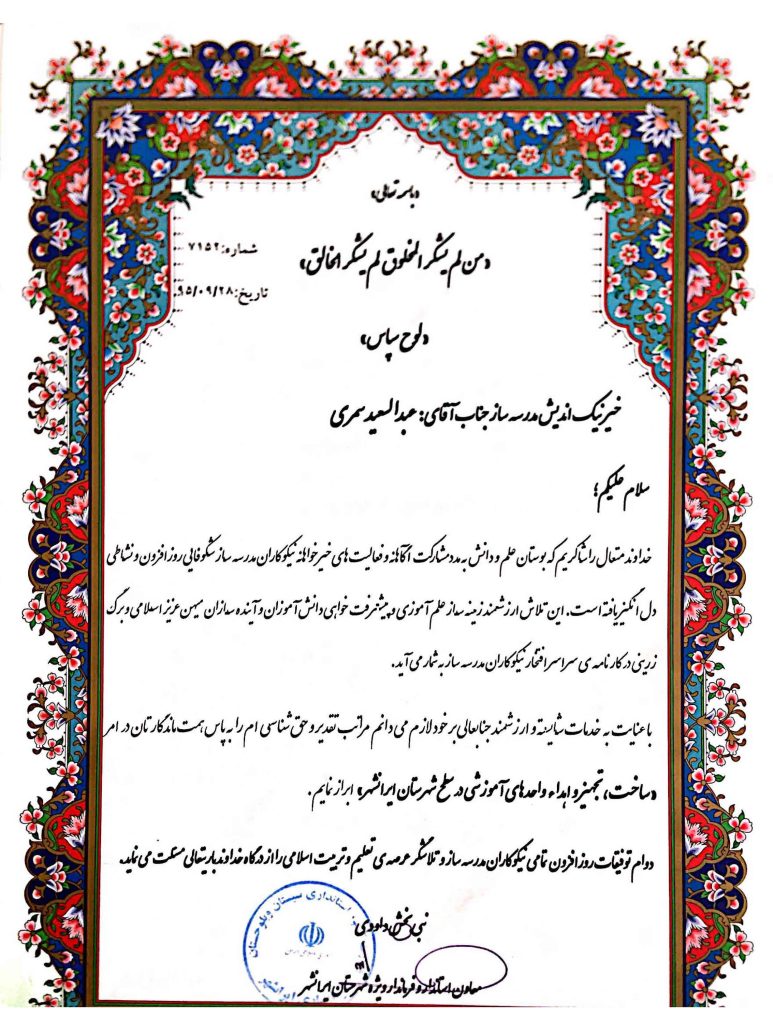 «باسمه تعالی»
«من لم یشکر المخلوق لم یشکر الخالق»
شماره: ۷۱۵۲
تاریخ: ۹۵/۰۹/۲۸
«لوح سپاس»
خیر نیک اندیش مدرسه ساز جناب آقای: عبدالسعید سمری
سلام علیکم؛
خداوند متعال را شاکریم که بوستان علم و دانش به مدد مشارکت آگاهانه و فعالیت های خیرخواهانه نیکوکاران مدرسه ساز شکوفایی روز افزون و نشاطی
دل انگیز یافته است. این تلاش ارزشمند زمینه ساز علم آموزی و پیشرفت خواهی دانش آموزان و آینده سازان میهن عزیز اسلامی و برگ
زرینی در کارنامه ی سراسر افتخار نیکوکاران مدرسه ساز به شمار می آید.
با عنایت به خدمات شایسته و ارزشمند جنابعالی بر خود لازم می دانم مراتب تقدیر و حق شناسی ام را به پاس همت ماندگارتان در امر
«ساخت، تجهیز و اهداء واحدهای آموزشی در سطح شهرستان ایرانشهر» ابراز نمایم.
دوام توفیقات روز افزون تمامی نیکوکاران مدرسه ساز و تلاشگر عرصه ی تعلیم و تربیت اسلامی را از درگاه خداوند باریتعالی مسئلت می نماید.
نبی بخش داودی
معاون استاندار و فرماندار ویژه شهرستان ایرانشهر
استانداری سیستان و بلوچستان